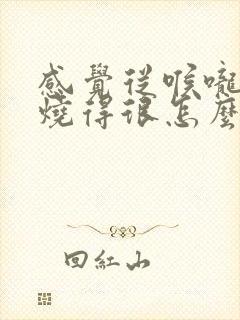 感覺從喉嚨
燒得很怎麼
回紅山